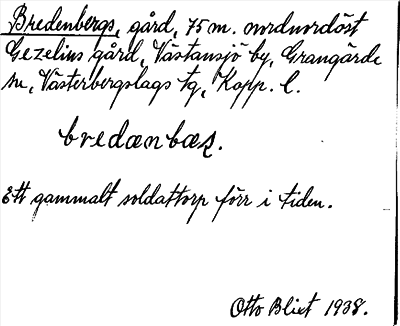 Bredenbergs, gård, 75 m. nordnordöst
Gezelius gård, Västansjö by, Grangärde
sn, Västerbergslags tg, Kopp. l.
bredænbæs.
Ett gammalt soldattorp förr i tiden.
Otto Blixt 1938.